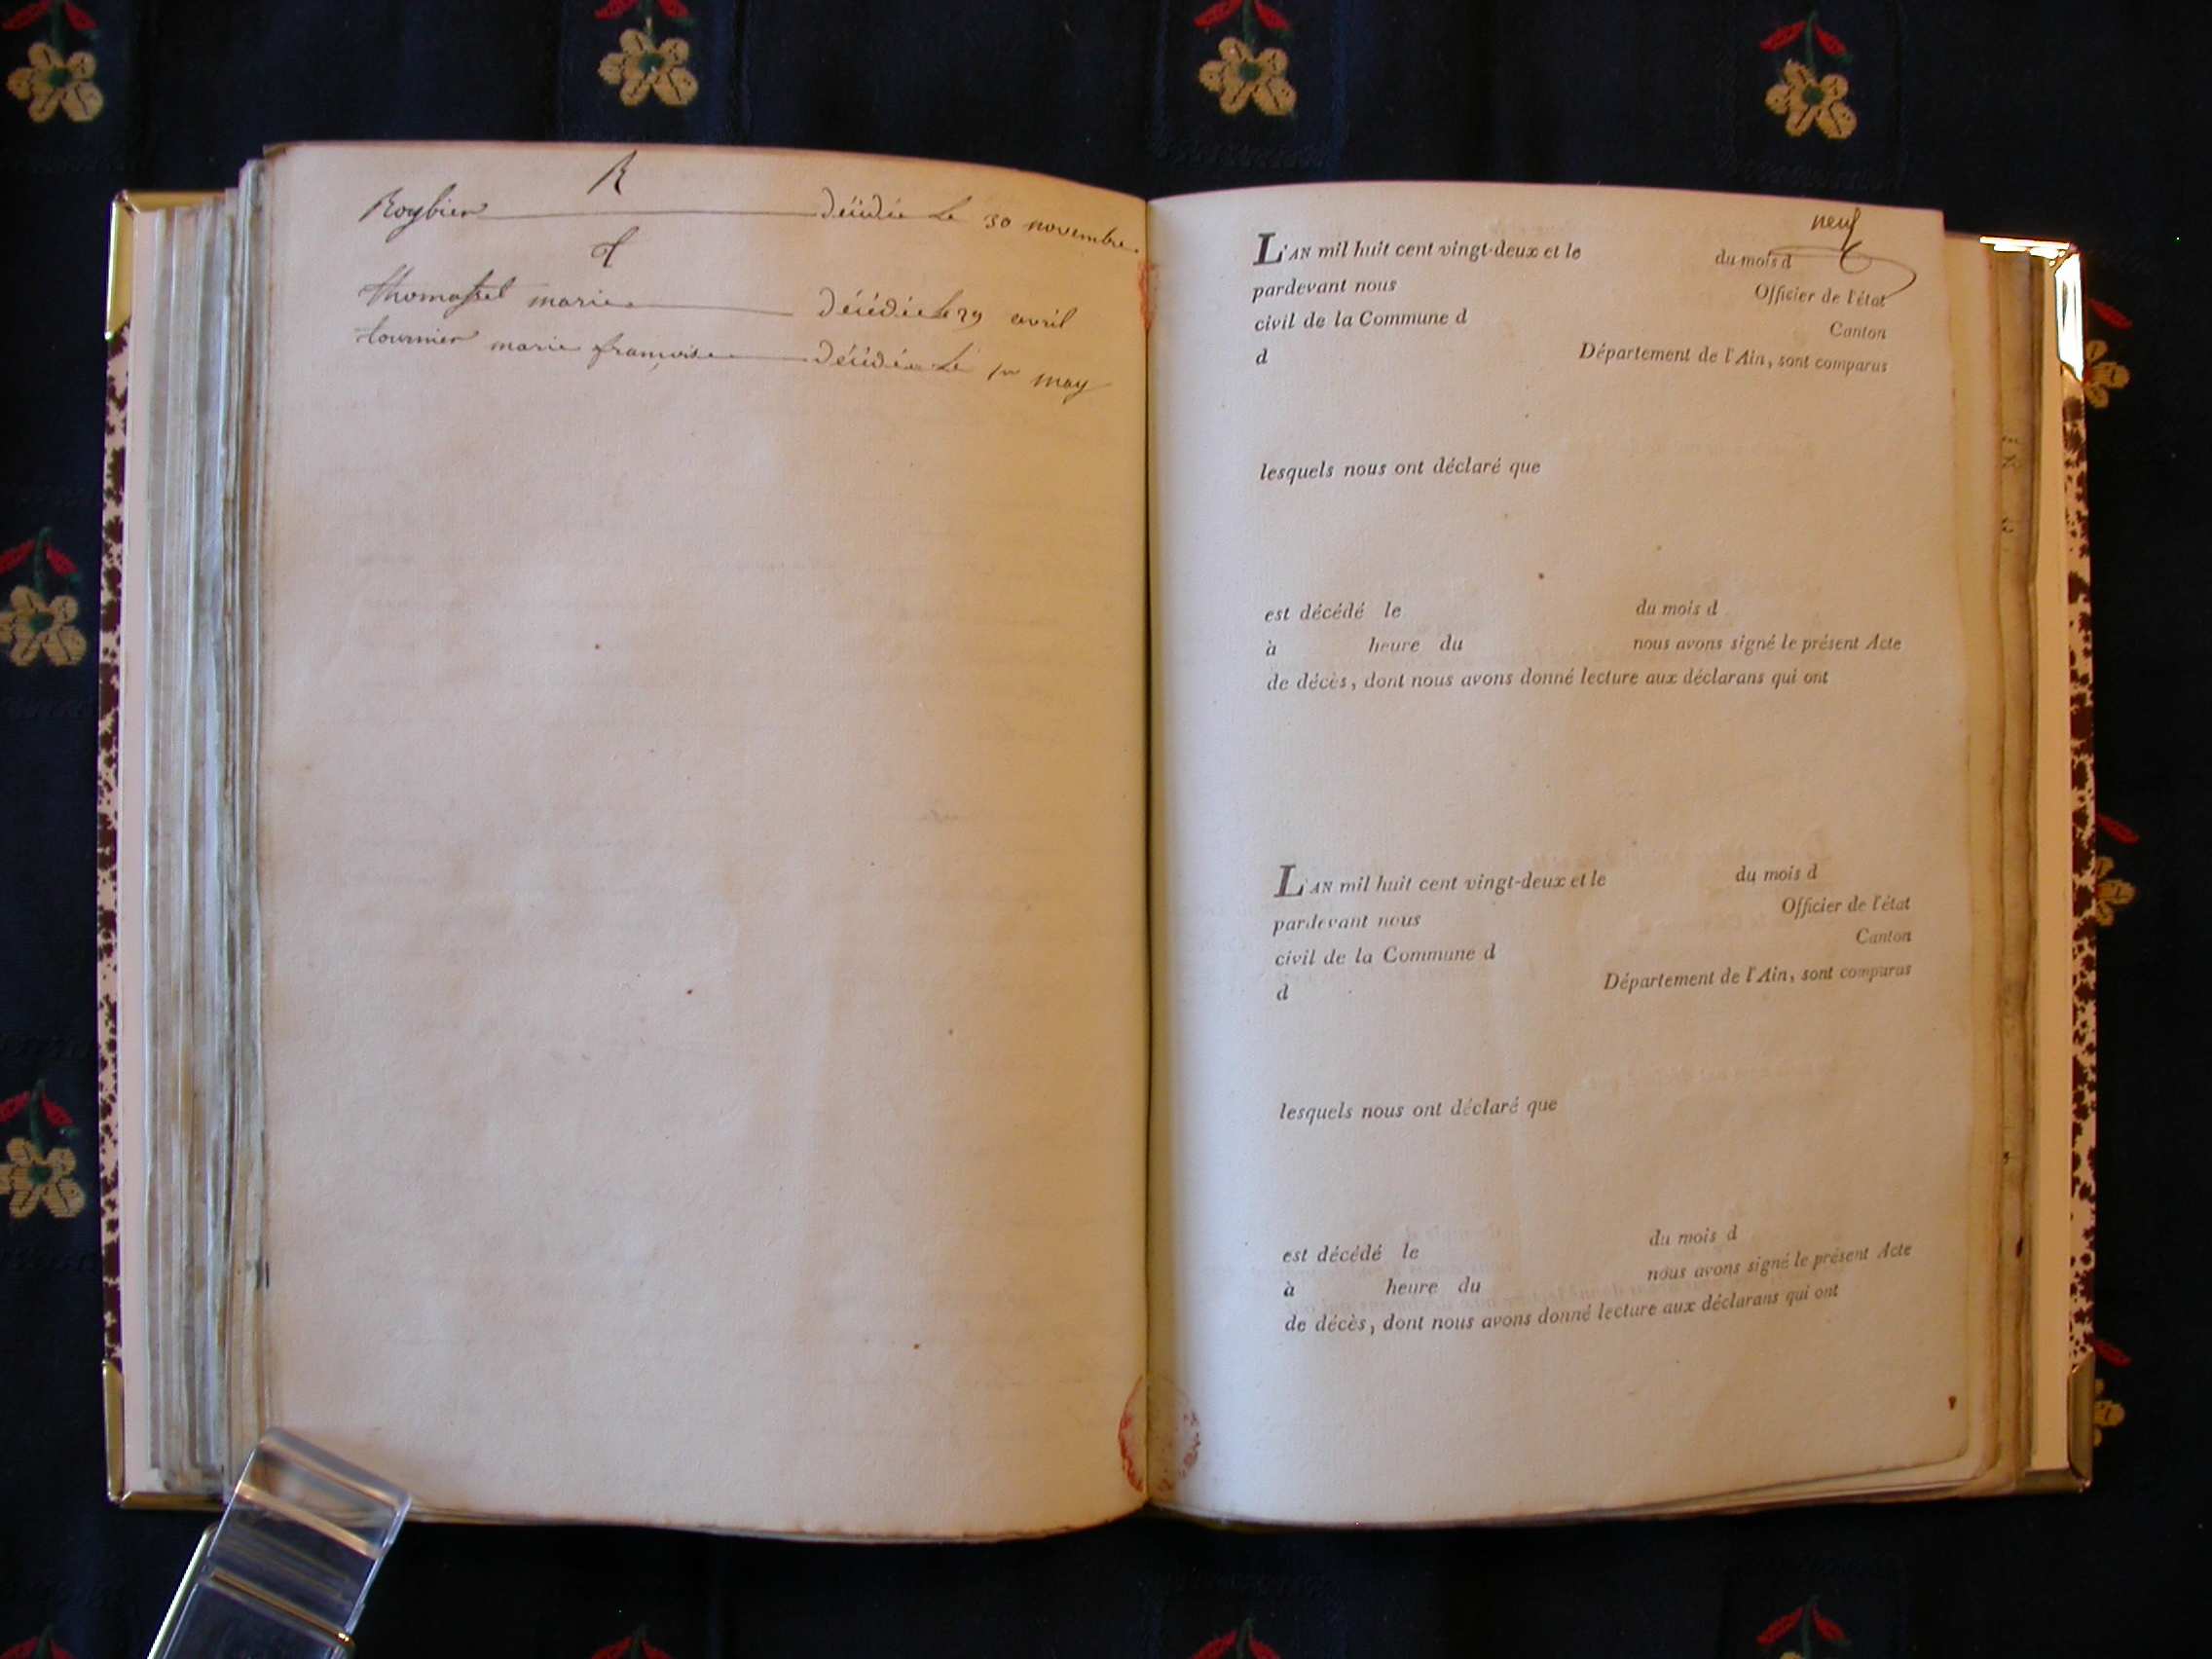 R
Roybier décédée le 30 novembre.
T
thomasset marie décédée le 29 avril
tournier marie françoise décédée le 1er may
neuf
L'AN mil huit cent vingt-deux et le du mois d
pardevant nous Officier de l'état
civil de la Commune d Canton
d Département de l'Ain, sont comparus
lesquels nous ont déclaré que
est décédé le du mois d
à heure du nous avons signé le présent Acte
de décès, dont nous avons donné lecture aux déclarans qui ont
L'AN mil huit cent vingt-deux et le du mois d
pardevant nous Officier de l'état
civil de la Commune d Canton
d Département de l'Ain, sont comparus
lesquels nous ont déclaré que
est décédé le du mois d
à heure du nous avons signé le présent Acte
de décès, dont nous avons donné lecture aux déclarans qui ont